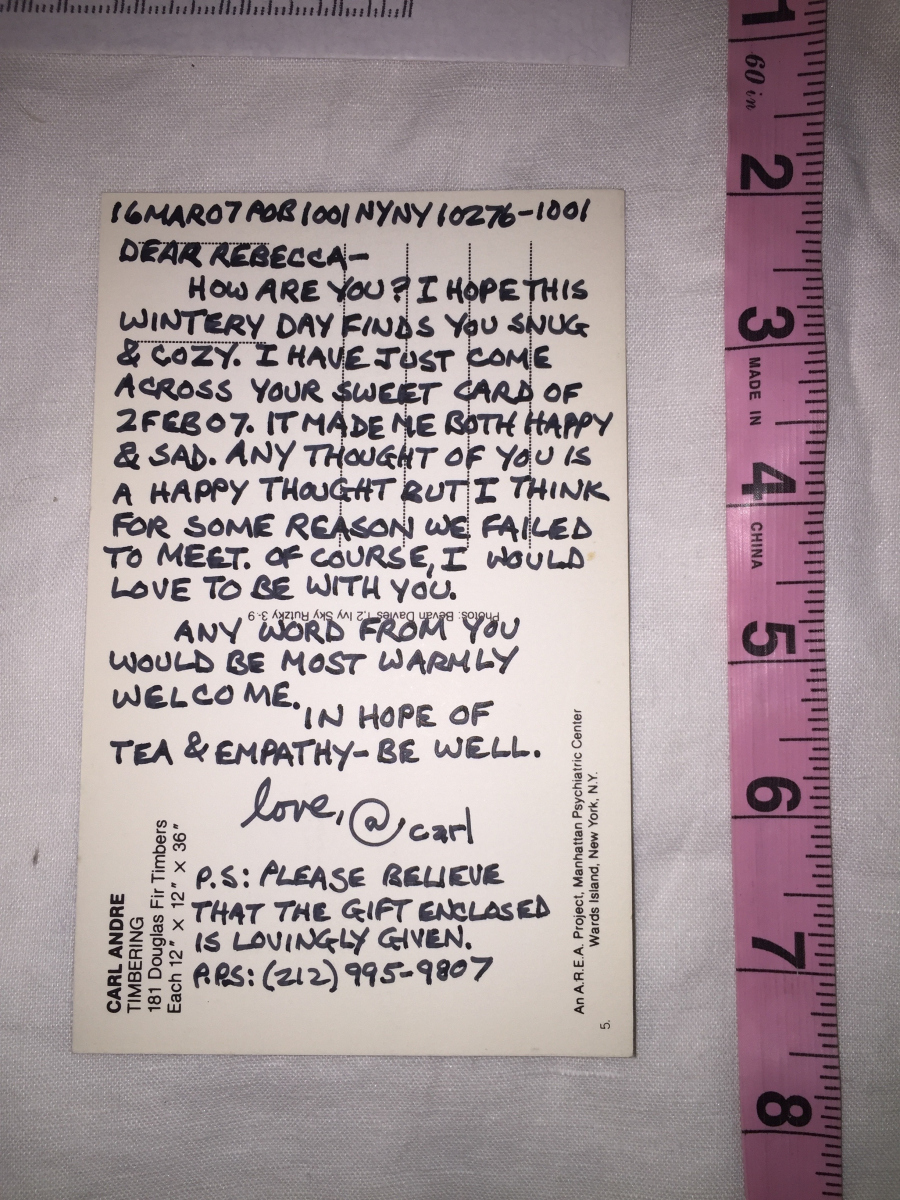 16MAR07 POB 1001 NYNY 10276-1001
DEAR REBECCA-
HOW ARE YOU? I HOPE THIS
WINTERY DAY FINDS YOU SNUG
& COZY. I HAVE JUST COME
ACROSS YOUR SWEET CARD OF
2FEB07. IT MADE ME BOTH HAPPY
& SAD. ANY THOUGHT OF YOU IS
A HAPPY THOUGHT BUT I THINK
FOR SOME REASON WE FAILED
TO MEET. OF COURSE, I WOULD
LOVE TO BE WITH YOU.
Photos: Bevan Davies 1,2 Ivy Sky Rutzky 3-9
ANY WORD FROM YOU
WOULD BE MOST WARMLY
WELCOME.
IN HOPE OF
TEA & EMPATHY-BE WELL.
love, @, carl
P.S: PLEASE BELIEVE
THAT THE GIFT ENCLOSED
IS LOVINGLY GIVEN.
P.P.S: (212) 995-9807
CARL ANDRE
TIMBERING
181 Douglas Fir Timbers
Each 12" x 12" x 36"
An A.R.E.A. Project, Manhattan Psychiatric Center
Wards Island, New York, N.Y.
5.
1
60 in
2
3
MADE IN
4
CHINA
5
6
7
8